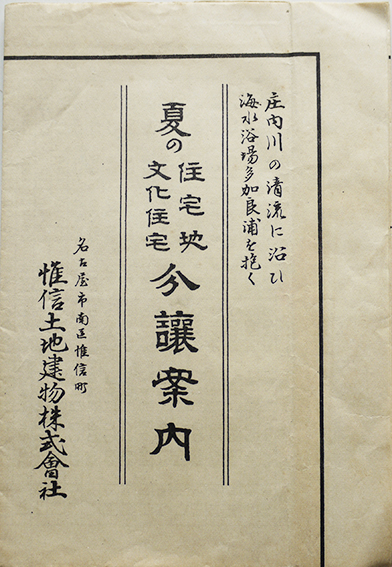 庄内川の清流に沿ひ
海水浴場多加良浦を抱く
夏の
住宅地
文化住宅
分譲案内
名古屋市南區惟信町
惟信土地建物株式會社